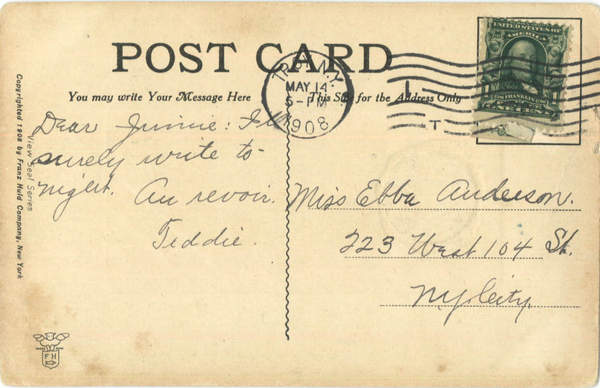 POST CARD
You may write Your Message Here
This Side for the Address Only
TROY, N.Y.
MAY 14
5-PM
1908
T
UNITED STATES OF
AMERICA
Copyrighted 1908 by Franz Huld Company, New York
View Seal Series
Dear Jimmie: I'll
surely write to-
night. Au revoir.
Teddie.
Miss Ebba Anderson.
223 West 104 St.
N.Y. City.
FH